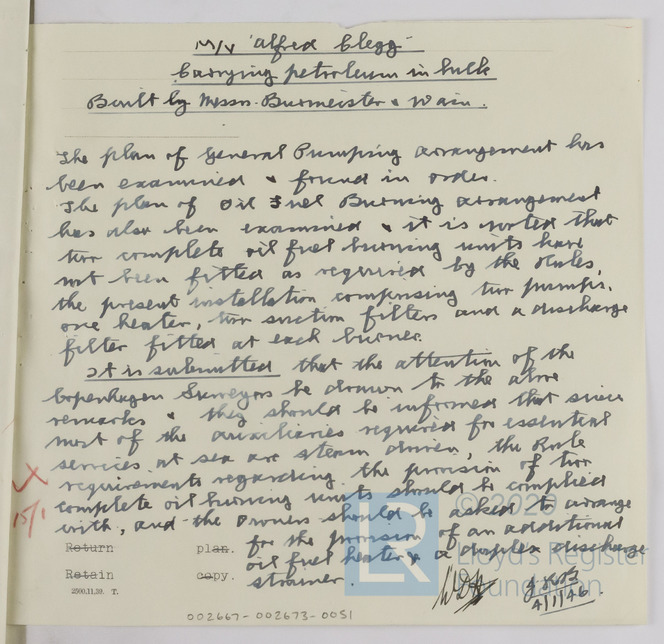 M/V "Alfred Clegg"
Carrying petroleum in bulk
Built by Messrs. Burmeister & Wain.
The plan of General Pumping arrangement has
been examined & found in order.
The plan of Oil Fuel Burning arrangement
has also been examined & it is noted that
two complete oil fuel burning units have
not been fitted as required by the Rules,
the present installation comprising two pumps,
one heater, two suction filters and a discharge
filter fitted at each burner.
It is submitted that the attention of the
Copenhagen Surveyors be drawn to the above
remarks & they should be informed that since
most of the auxiliaries required for essential
services at sea are steam driven, the Rule
requirements regarding the provision of two
complete oil burning units should be complied
with, and the Owners should be asked to arrange
for the provision of an additional
oil fuel heater & a duplex discharge
strainer.
X
15/1
Return plan.
Retain copy.
2500,11,39. T.
4/1/46
002667-002673-0051
© 2020
LR
Lloyd's Register
Foundation